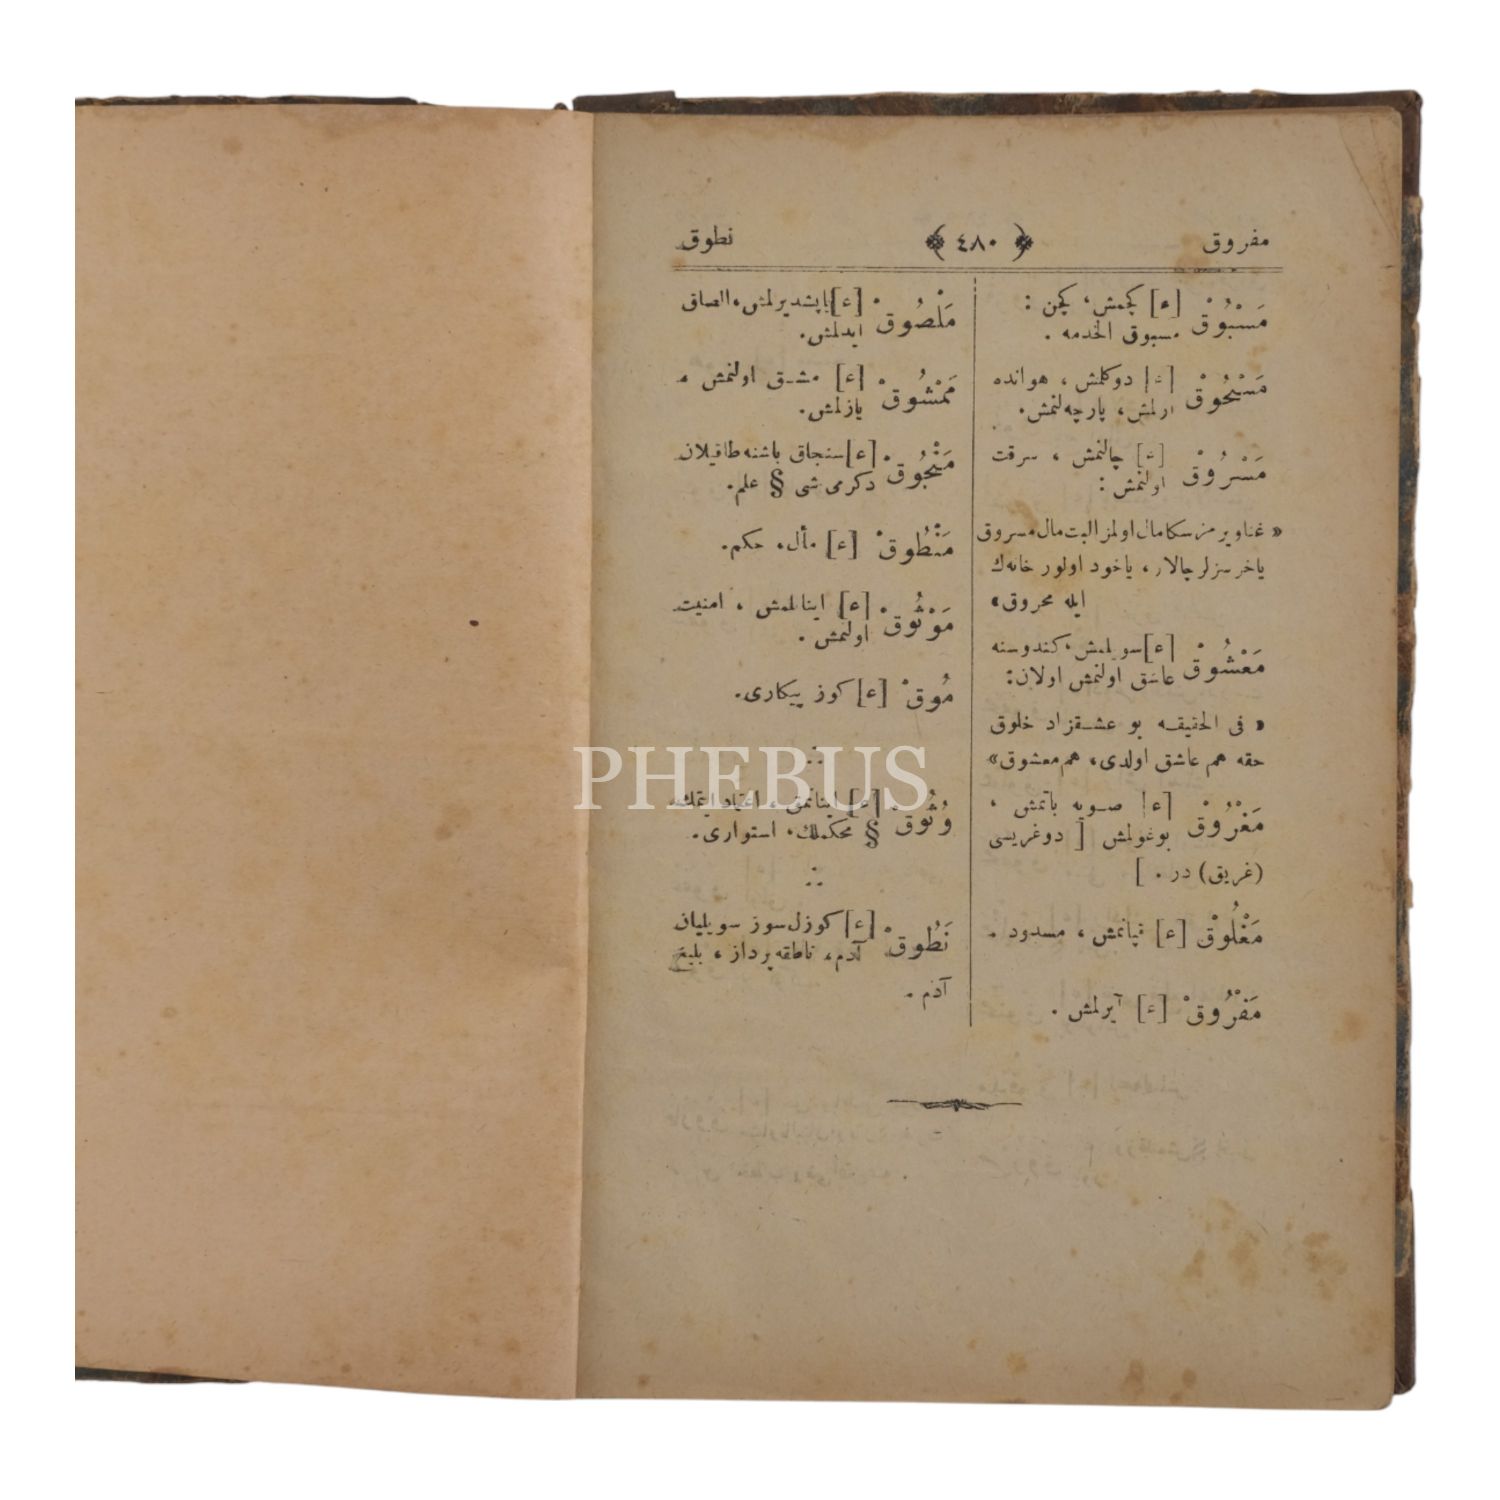 مفروق ﴿ ٤٨٠ ﴾ نطوق
مَسْبُوقْ [ء] كچمش، كچن :
مسبوق الخدمه .
مَسْحُوقْ [ء] دوكلمش ، هوانده
ازلمش، پارچه‌لنمش.
مَسْرُوقْ [ء] چالنمش ، سرقت
اولنمش :
« غناویرمز سكا مال اولمز البت مال مسروق
یاخرسزلر چالار ، یاخود اولور خانه‌ك
ایله محروق»
مَعْشُوقْ [ء] سویلمش، كندوسنه
عاشق اولنمش اولان:
« فی الحقیقه بو عشقزاد خلوق
حقه هم عاشق اولدی، هم معشوق»
مَغْرُوقْ [ء] صویه باتمش ،
بوغولمش [ دوغریسی
(غریق) در . ]
مَغْلُوقْ [ء] قپانمش ، مسدود .
مَفْرُوقْ [ء] آیرلمش .
مَلْصُوقْ [ء] یاپشدیرلمش، الصاق
ایدلمش.
مَمْشُوقْ [ء] مشق اولنمش ،
یازلمش.
مَنْجُوقْ [ء] سنجاق باشنه طاقیلان
دكرمی شی § علم.
مَنْطُوقْ [ء] مأل، حكم.
مَوْثُوقْ [ء] اینانلمش ، امنیت
اولنمش .
مُوقْ [ء] كوز پیكاری.
وُثُوقْ [ء] اینانمق ، اعتماد ایتمك،
§ محكملك، استواری.
نَطُوقْ [ء] كوزل سوز سویلیان
آدم، ناطقه‌پرداز ، بلیغ
آدم .
PHEBUS